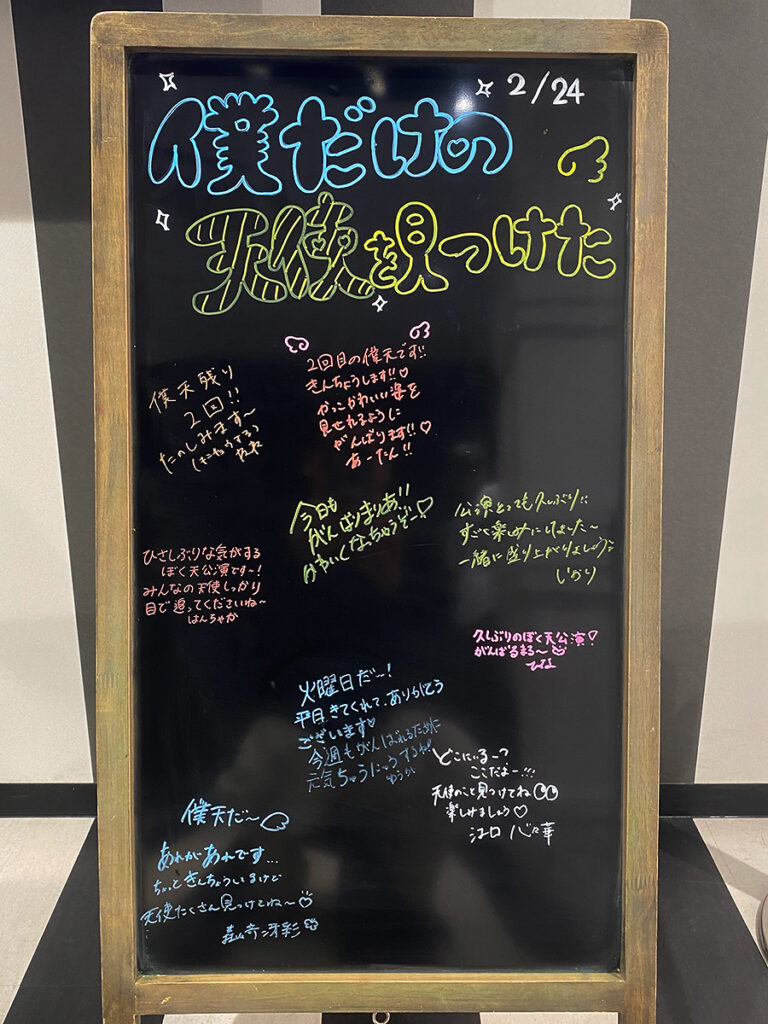 2/24
僕だけの
天使を見つけた
僕天残り
2回!!
たのしみます〜
2回目の僕天です!!
きんちょうします!!♡
かっこかわいい姿を
見せれるように
がんばります!!♡
あーたん!!
今日も
がんばりまりあ!!
かわいくなっちゃうぞー♡
公演とっても久しぶり!!
すごく楽しみにしてました〜
一緒に盛り上がりましょう
ひさしぶりな気がする
ぼく天公演です〜!
みんなの天使しっかり
目で追ってくださいね〜
はんちゃか
久しぶりのぼく天公演!
がんばるまる〜
ひな
火曜日だ〜!
平日、きてくれて、ありがとう
ございます♡
今週もがんばれるために
元気ちゅうにゅうするね!
ゆうか
どこにいるー?
ここだよー!!!
天使のこと見つけてね
楽しみましょう♡
江口 心々華
僕天だ〜
あれがあれです…
ちょっときんちょうしてるけど
天使たくさん見つけてね〜